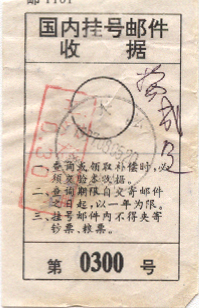 国内挂号邮件
收 据
一、查询或领取补偿时，必
须交验本收据。
二、查询期限自交寄邮件
之日起，以一年为限。
三、挂号邮件内不得夹寄
钞票、粮票。
第 0300 号